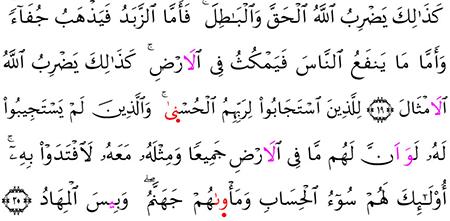 كَذَٰلِكَ يَضْرِبُ اللَّهُ الْحَقَّ وَالْبَـٰطِلَ ۚ فَأَمَّا الزَّبَدُ فَيَذْهَبُ جُفَآءً ۖ
وَأَمَّا مَا يَنفَعُ النَّاسَ فَيَمْكُثُ فِى الَارْضِ ۚ كَذَٰلِكَ يَضْرِبُ اللَّهُ
الَامْثَالَ ﴿١٩﴾ لِلَّذِينَ اسْتَجَابُوا۟ لِرَبِّهِمُ الْحُسْنىٰ ۚ وَالَّذِينَ لَمْ يَسْتَجِيبُوا۟
لَهُۥ لَوَ اَنَّ لَهُم مَّا فِى الَارْضِ جَمِيعًا وَمِثْلَهُۥ مَعَهُۥ لَافْتَدَوْا۟ بِهِۦٓ ۚ
أُو۟لَـٰٓئِكَ لَهُمْ سُوٓءُ الْحِسَابِ وَمَأْوىٰهُمْ جَهَنَّمُ ۖ وَبِيسَ الْمِهَادُ ﴿٢٠﴾